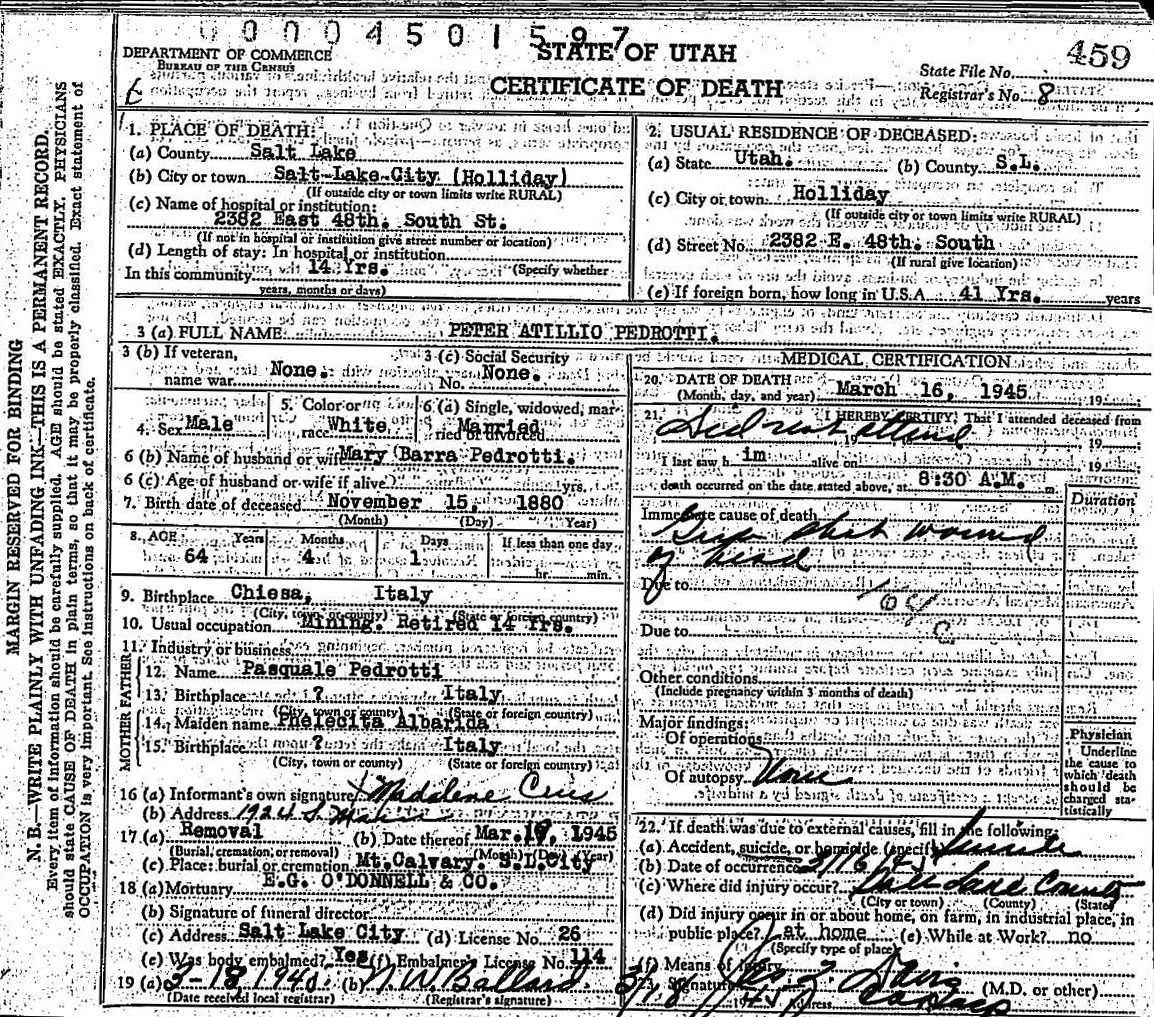 00004501597
DEPARTMENT OF COMMERCE
BUREAU OF THE CENSUS
STATE OF UTAH
CERTIFICATE OF DEATH
459
State File No.
Registrar's No. 8
MARGIN RESERVED FOR BINDING
N. B.—WRITE PLAINLY WITH UNFADING INK—THIS IS A PERMANENT RECORD.
Every item of information should be carefully supplied. AGE should be stated EXACTLY. PHYSICIANS
should state CAUSE OF DEATH in plain terms, so that it may be properly classified. Exact statement of
OCCUPATION is very important. See instructions on back of certificate.
1. PLACE OF DEATH:
(a) County Salt Lake
(b) City or town Salt-Lake-City (Holliday)
(If outside city or town limits write RURAL)
(c) Name of hospital or institution:
2382 East 48th. South St.
(If not in hospital or institution give street number or location)
(d) Length of stay: In hospital or institution
In this community 14 Yrs. (Specify whether
years, months or days)
2. USUAL RESIDENCE OF DECEASED:
(a) State Utah. (b) County S.L.
(c) City or town Holliday
(If outside city or town limits write RURAL)
(d) Street No. 2382 E. 48th. South
(If rural give location)
(e) If foreign born, how long in U.S.A. 41 Yrs. years
3 (a) FULL NAME PETER ATILLIO PEDROTTI.
3 (b) If veteran,
name war None.
3 (c) Social Security
No. None.
4. Sex Male
5. Color or
race White
6 (a) Single, widowed, mar-
ried or divorced Married
6 (b) Name of husband or wife Mary Barra Pedrotti.
6 (c) Age of husband or wife if alive yrs.
7. Birth date of deceased November 15, 1880
(Month) (Day) (Year)
8. AGE Years Months Days If less than one day
64 4 1 hr. min.
9. Birthplace Chiesa, Italy
(City, town, or county) (State or foreign country)
10. Usual occupation Mining. Retired 14 Yrs.
11. Industry or business
FATHER
12. Name Pasquale Pedrotti
13. Birthplace ? Italy
(City, town or county) (State or foreign country)
MOTHER
14. Maiden name Phelecita Albarida
15. Birthplace ? Italy
(City, town or county) (State or foreign country)
16 (a) Informant's own signature Madalene
(b) Address 1924 S.
17 (a) Removal (b) Date thereof Mar. 1945
(Burial, cremation, or removal) (Month) (Day) (Year)
(c) Place: burial or cremation Mt. Calvary. S.L.City
18 (a) Mortuary E.G. O'DONNELL & CO.
(b) Signature of funeral director
(c) Address Salt Lake City (d) License No. 26
(e) Was body embalmed? Yes (f) Embalmer License No. 114
19 (a) 3-18, 194 (b) N. W. Ballard
(Date received local registrar) (Registrar's signature)
MEDICAL CERTIFICATION
20. DATE OF DEATH
(Month, day, and year) March 16, 1945 19
21. I HEREBY CERTIFY, That I attended deceased from
Did not attend 19 19
I last saw h im alive on 19
death occurred on the date stated above, at 8:30 A.M. m.
Duration
Immediate cause of death
Gun shot wound
of head
Due to
164
Due to
C
Other conditions
(Include pregnancy within 3 months of death)
Major findings:
Of operations
Of autopsy None
Physician
Underline
the cause to
which death
should be
charged sta-
tistically
22. If death was due to external causes, fill in the following:
(a) Accident, suicide, or homicide (specify) Suicide
(b) Date of occurrence 3/16/45
(c) Where did injury occur? Salt Lake County
(City or town) (County) (State)
(d) Did injury occur in or about home, on farm, in industrial place, in
public place? at home (e) While at Work? no
(Specify type of place)
(f) Means of injury
23. Signature Davis (M.D. or other)
3/18 1945 Address